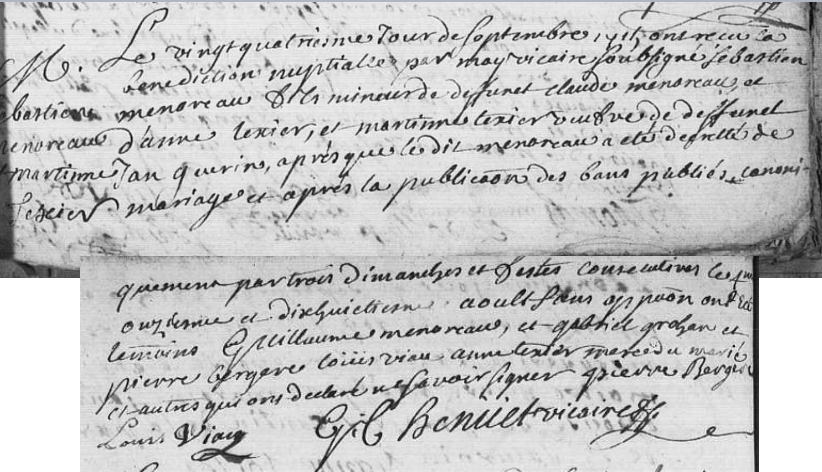 M.
Sebastien
menoreau
et martinne
Texier
Le vingt quatriesme Jour de Septembre, ont recu la
benediction nuptialle par moy vicaire soubsigné Sebastien
menoreau fils mineur de deffunct claude menoreau, et
d'anne texier, et martinne texier veufve de deffunct
Jan querin, apres que le dit menoreau a eté decretté de
mariage et apres la publicaon des bans publiés canoni-
quement par trois dimanches et festes consecutives le
onzieme et dixhuictiesme aoult sans oppuon ont eté
temoins Guillaume menoreau, et gabriel grohan et
pierre bergere louis viau anne texier mere du marié
et autres qui ont declaré ne savoir signer pierre Berger
Louis Viau G henuet vicaire